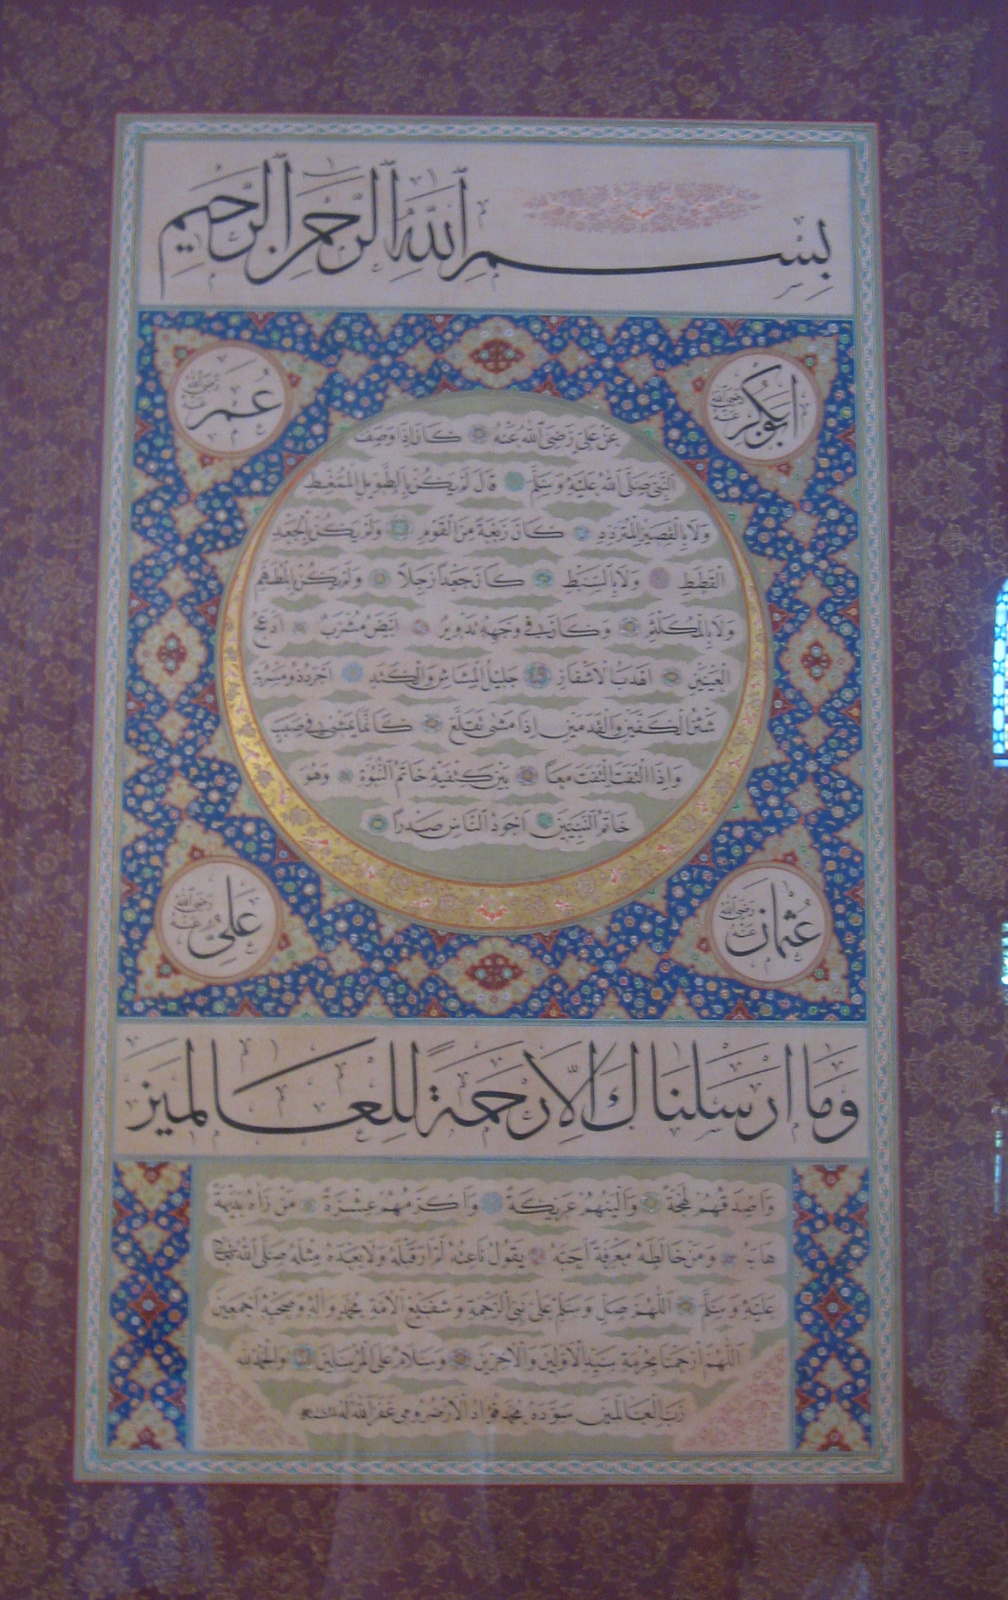 بِسْمِ اللّٰهِ الرَّحْمٰنِ الرَّحِيمِ
ابوبكر رضي الله عنه
عمر رضي الله عنه
عن علي رضي الله عنه كان اذا وصف
النبي صلى الله عليه وسلم قال لم يكن بالطويل الممغط
ولا بالقصير المتردد كان ربعة من القوم ولم يكن بالجعد
القطط ولا بالسبط كان جعدا رجلا ولم يكن بالمطهم
ولا بالمكلثم وكان في وجهه تدوير ابيض مشرب ادعج
العينين اهدب الاشفار جليل المشاش والكتد اجرد ذو مسربة
شثن الكفين والقدمين اذا مشى تقلع كانما يمشي في صبب
واذا التفت التفت معا بين كتفيه خاتم النبوة وهو
خاتم النبيين اجود الناس صدرا
عثمان رضي الله عنه
علي رضي الله عنه
وما ارسلناك الا رحمة للعالمين
واصدقهم لهجة والينهم عريكة واكرمهم عشرة من رآه بديهة
هابه ومن خالطه معرفة احبه يقول ناعته لم ار قبله ولا بعده مثله صلى الله
عليه وسلم اللهم صل وسلم على نبي الرحمة وشفيع الامة محمد وآله وصحبه اجمعين
اللهم ارحمنا بحرمة سيد الاولين والآخرين وسلام على المرسلين والحمد لله
رب العالمين سوده محمد فؤاد الارضرومي غفر الله له